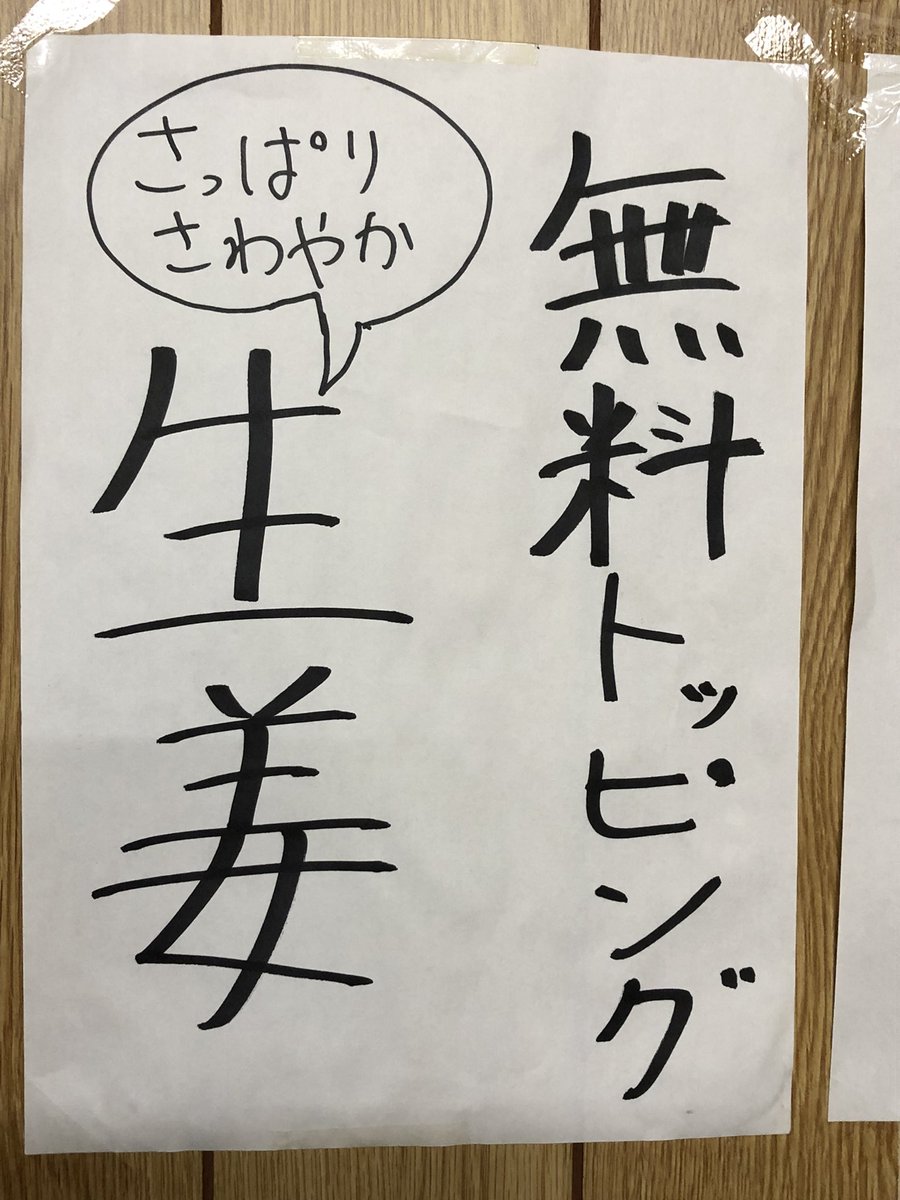 無料トッピング
さっぱり
さわやか
生姜